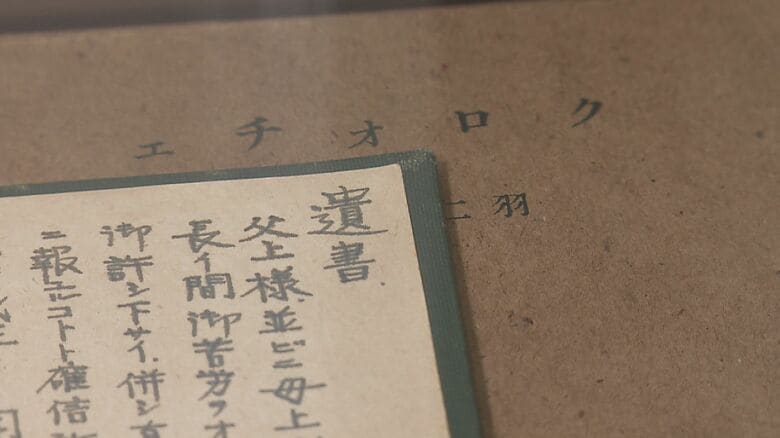 クロオチエ
羽
遺書
父上様並ビニ母上
長イ間御苦労ヲオ
御許シ下サイ、併シ
ニ報エルコトト確信